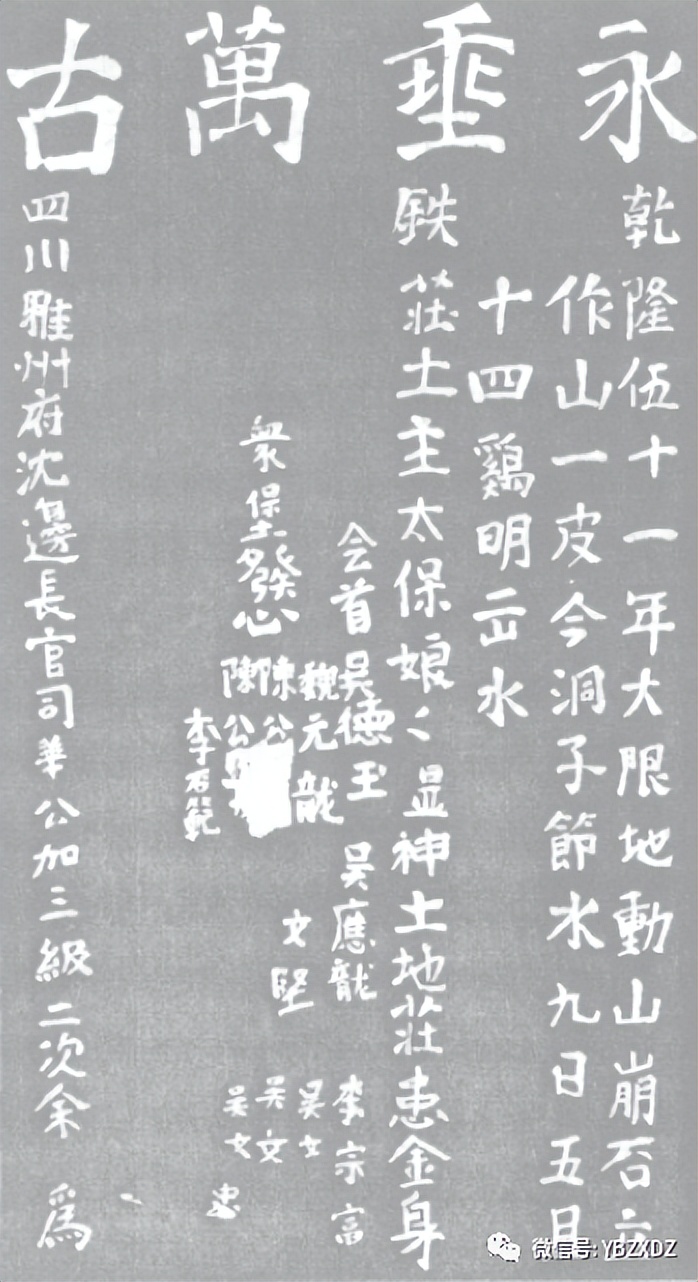 永垂萬古
乾隆伍十一年大限地動山崩石
作山一皮今洞子節水九日五月
十四鷄明出水
鉄莊土主太保娘々显神土地莊恚金身
会首吳德玉 吳應龍 李宗富
魏元龍 文堅 吳文
陳公 吳文
衆堡發心 陳公 吳文
李石範 忠
四川雅州府沈邊長官司華公加三級二次余 爲
微信号: YBZXDZ